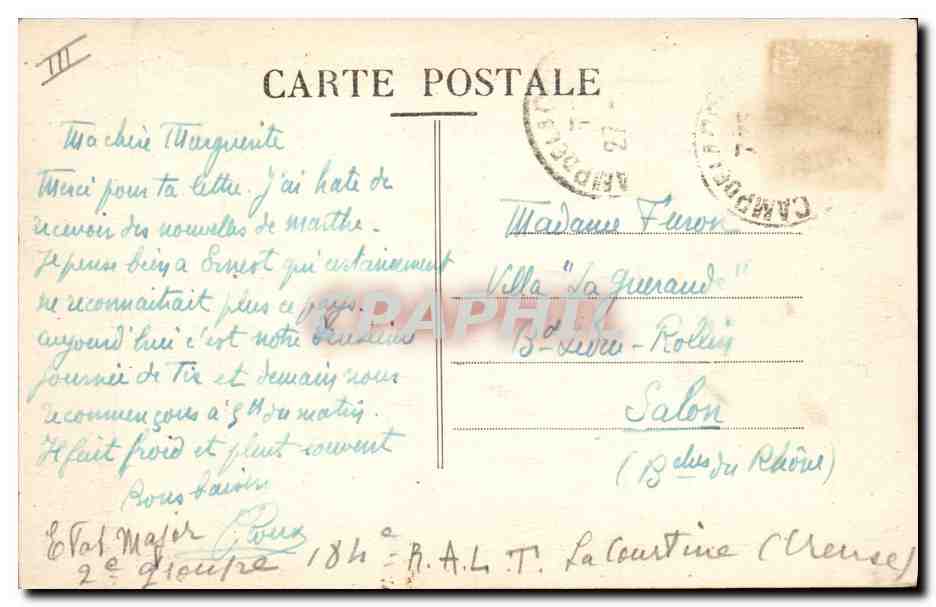 III
CARTE POSTALE
Ma chère Marguerite
Merci pour ta lettre. J'ai hate de
recevoir des nouvelles de Marthe.
Je pense bien a Ernest qui certainement
ne reconnaitrait plus ce pays.
aujourd'hui c'est notre deuxième
journée de Tir et demain nous
recommençons à 5h du matin.
Il fait froid et pleut souvent
Bons baisers
Etat Major
2e groupe 184e R.A.L.T. La Courtine (Creuse)
Madame Furon
Villa "La Guerande"
Bd Ledru-Rollin
Salon
(Bches du Rhône)
CAMP DE LA
CAMP DE LA
CPAPHIL